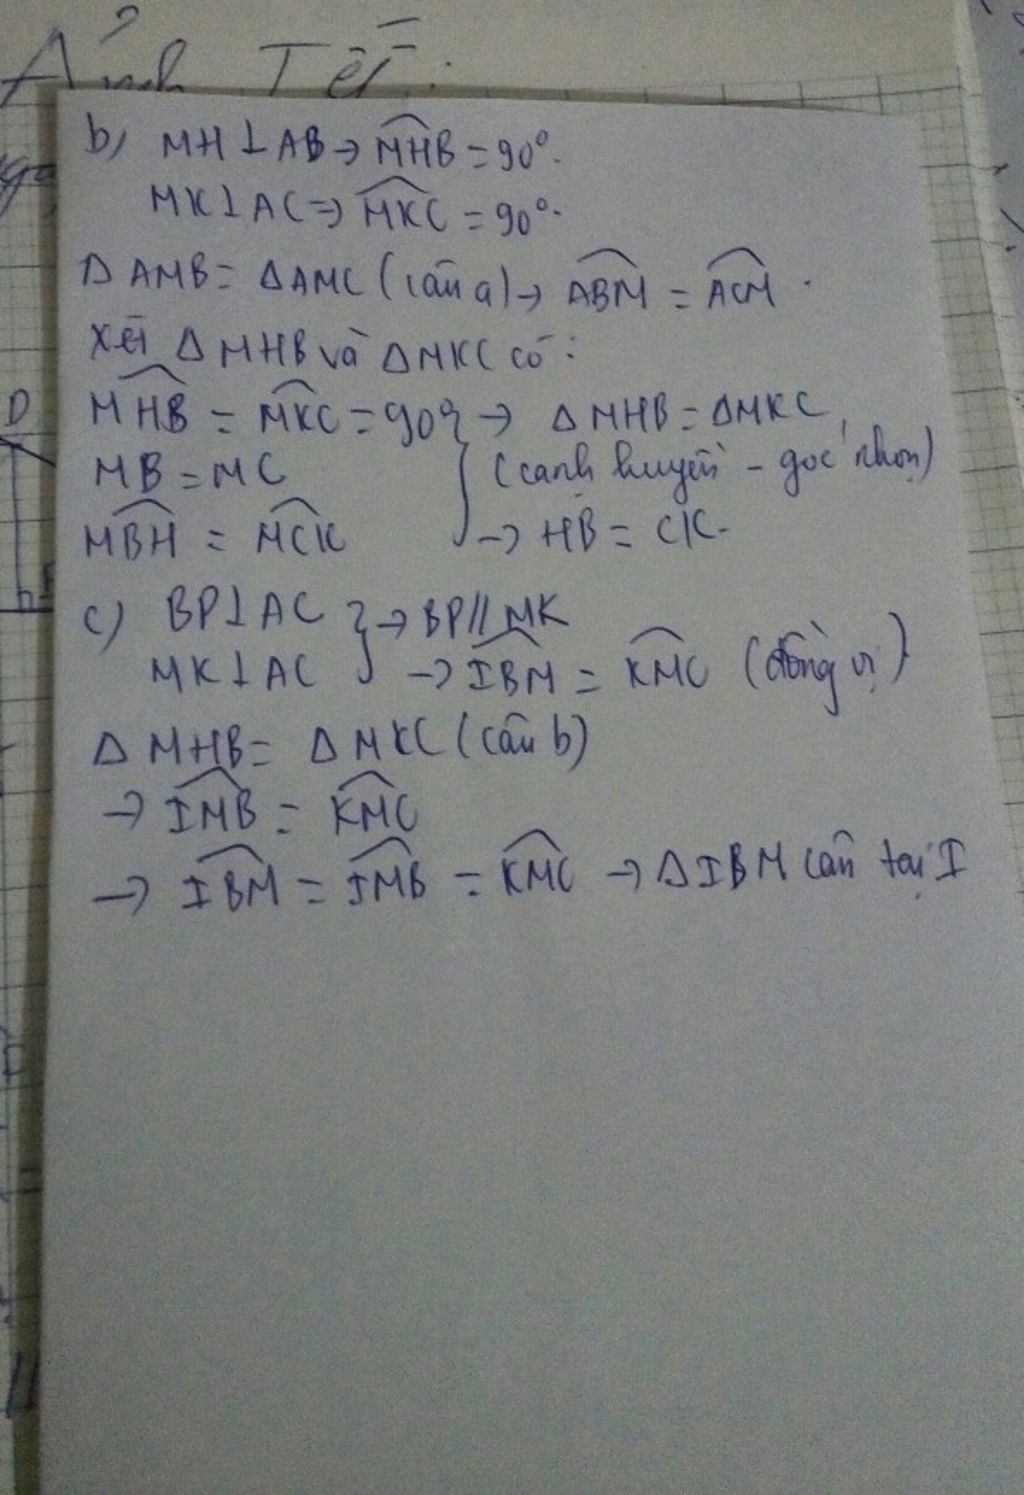 Ảnh Tết:
D
b) MH⊥AB → \widehat{MHB} = 90°.
MK⊥AC ⇒ \widehat{MKC} = 90°.
Δ AMB = Δ AMC (câu a) → \widehat{ABM} = \widehat{ACM}.
Xét Δ MHB và Δ MKC có:
\widehat{MHB} = \widehat{MKC} = 90° } → Δ MHB = Δ MKC
MB = MC (cạnh huyền - góc nhọn)
\widehat{MBH} = \widehat{MCK} → HB = CK.
c) BP⊥AC } → BP // MK
MK⊥AC → \widehat{IBM} = \widehat{KMC} (đồng vị)
Δ MHB = Δ MKC (câu b)
→ \widehat{IMB} = \widehat{KMC}
→ \widehat{IBM} = \widehat{IMB} = \widehat{KMC} → Δ IBM cân tại I